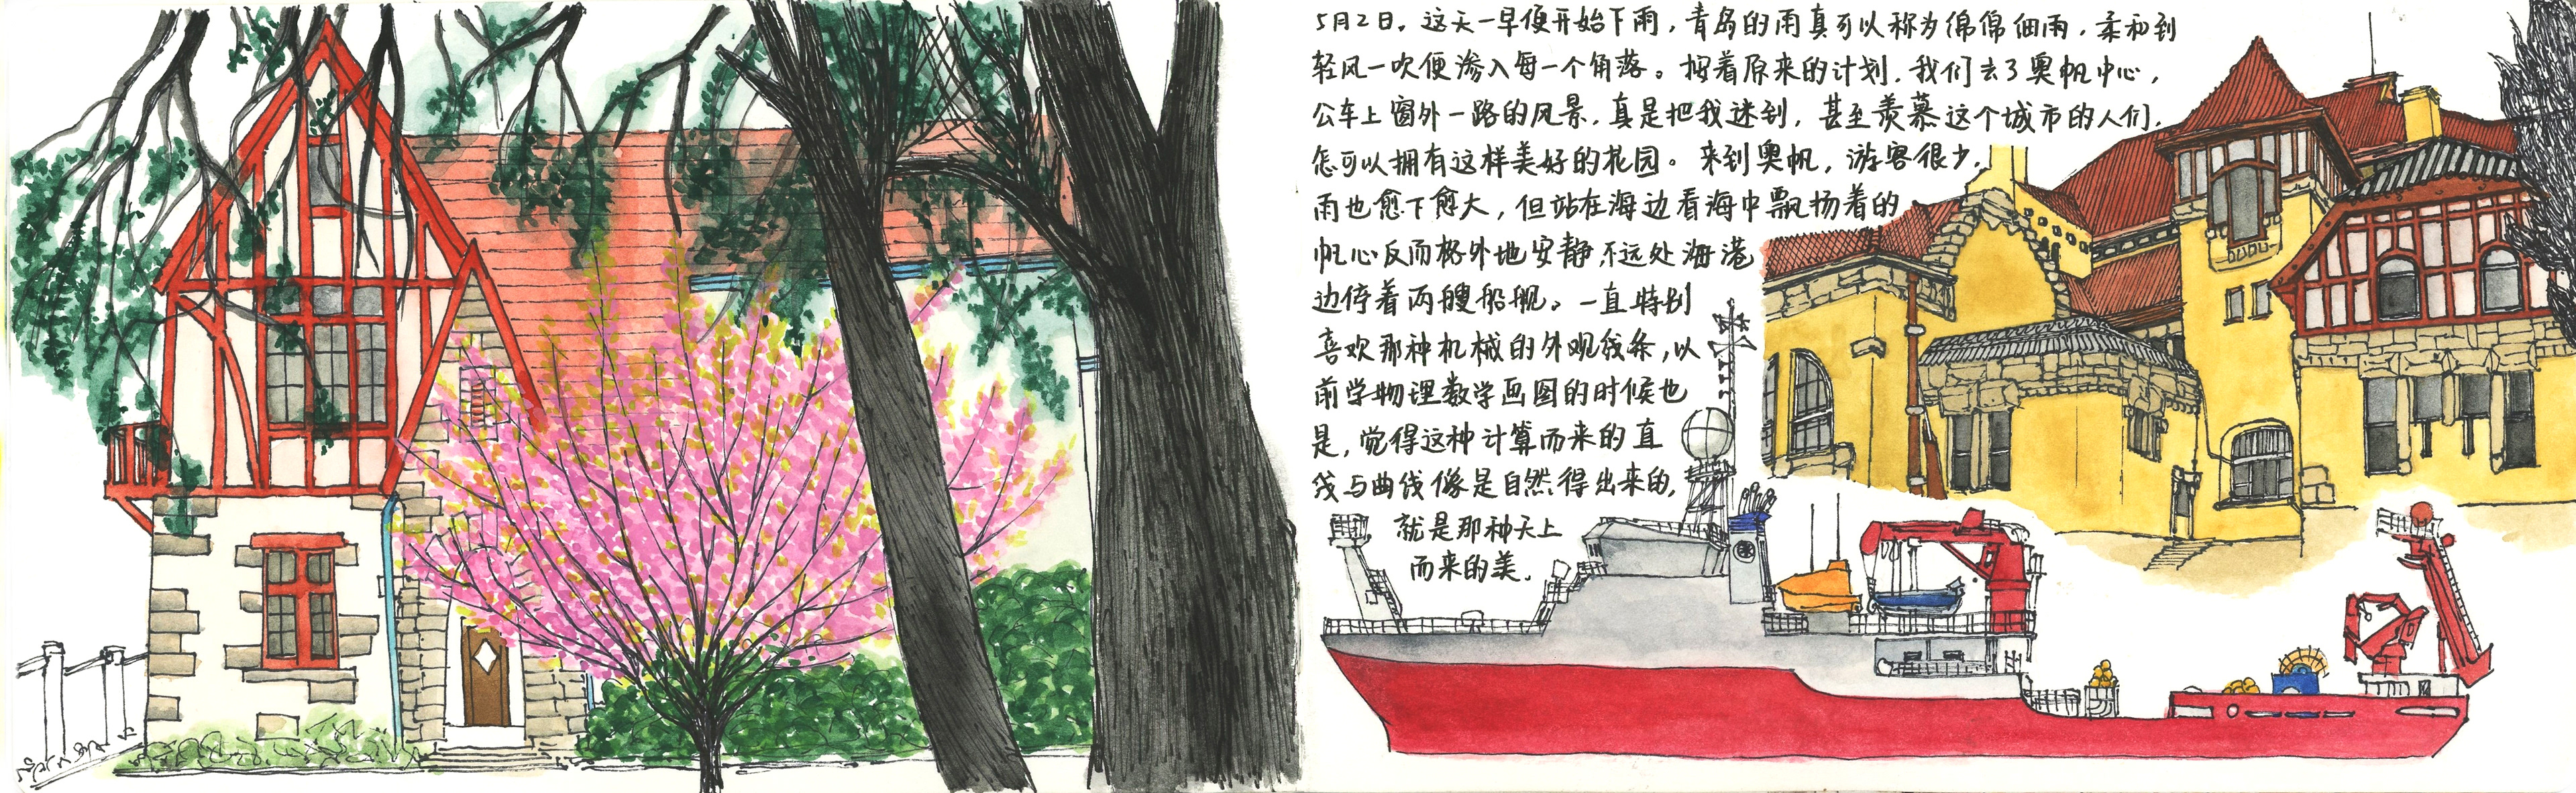 5月2日。这天一早便开始下雨，青岛的雨真可以称为绵绵细雨，柔和到
轻风一吹便渗入每一个角落。按着原来的计划，我们去了奥帆中心，
公车上窗外一路的风景，真是把我迷到，甚至羡慕这个城市的人们，
怎可以拥有这样美好的花园。来到奥帆，游客很少，
雨也愈下愈大，但站在海边看海中飘扬着的
帆心反而格外地安静，不远处海港
边停着两艘船舰。一直特别
喜欢那种机械的外观线条，以
前学物理数学画图的时候也
是，觉得这种计算而来的直
线与曲线像是自然得出来的，
就是那种天上
而来的美。